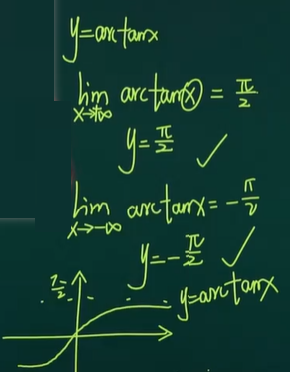 y=arctanx
lim arctanx = π/2
x→+∞
y=π/2 ✓
lim arctanx = -π/2
x→-∞
y=-π/2 ✓
π/2
y=arctanx